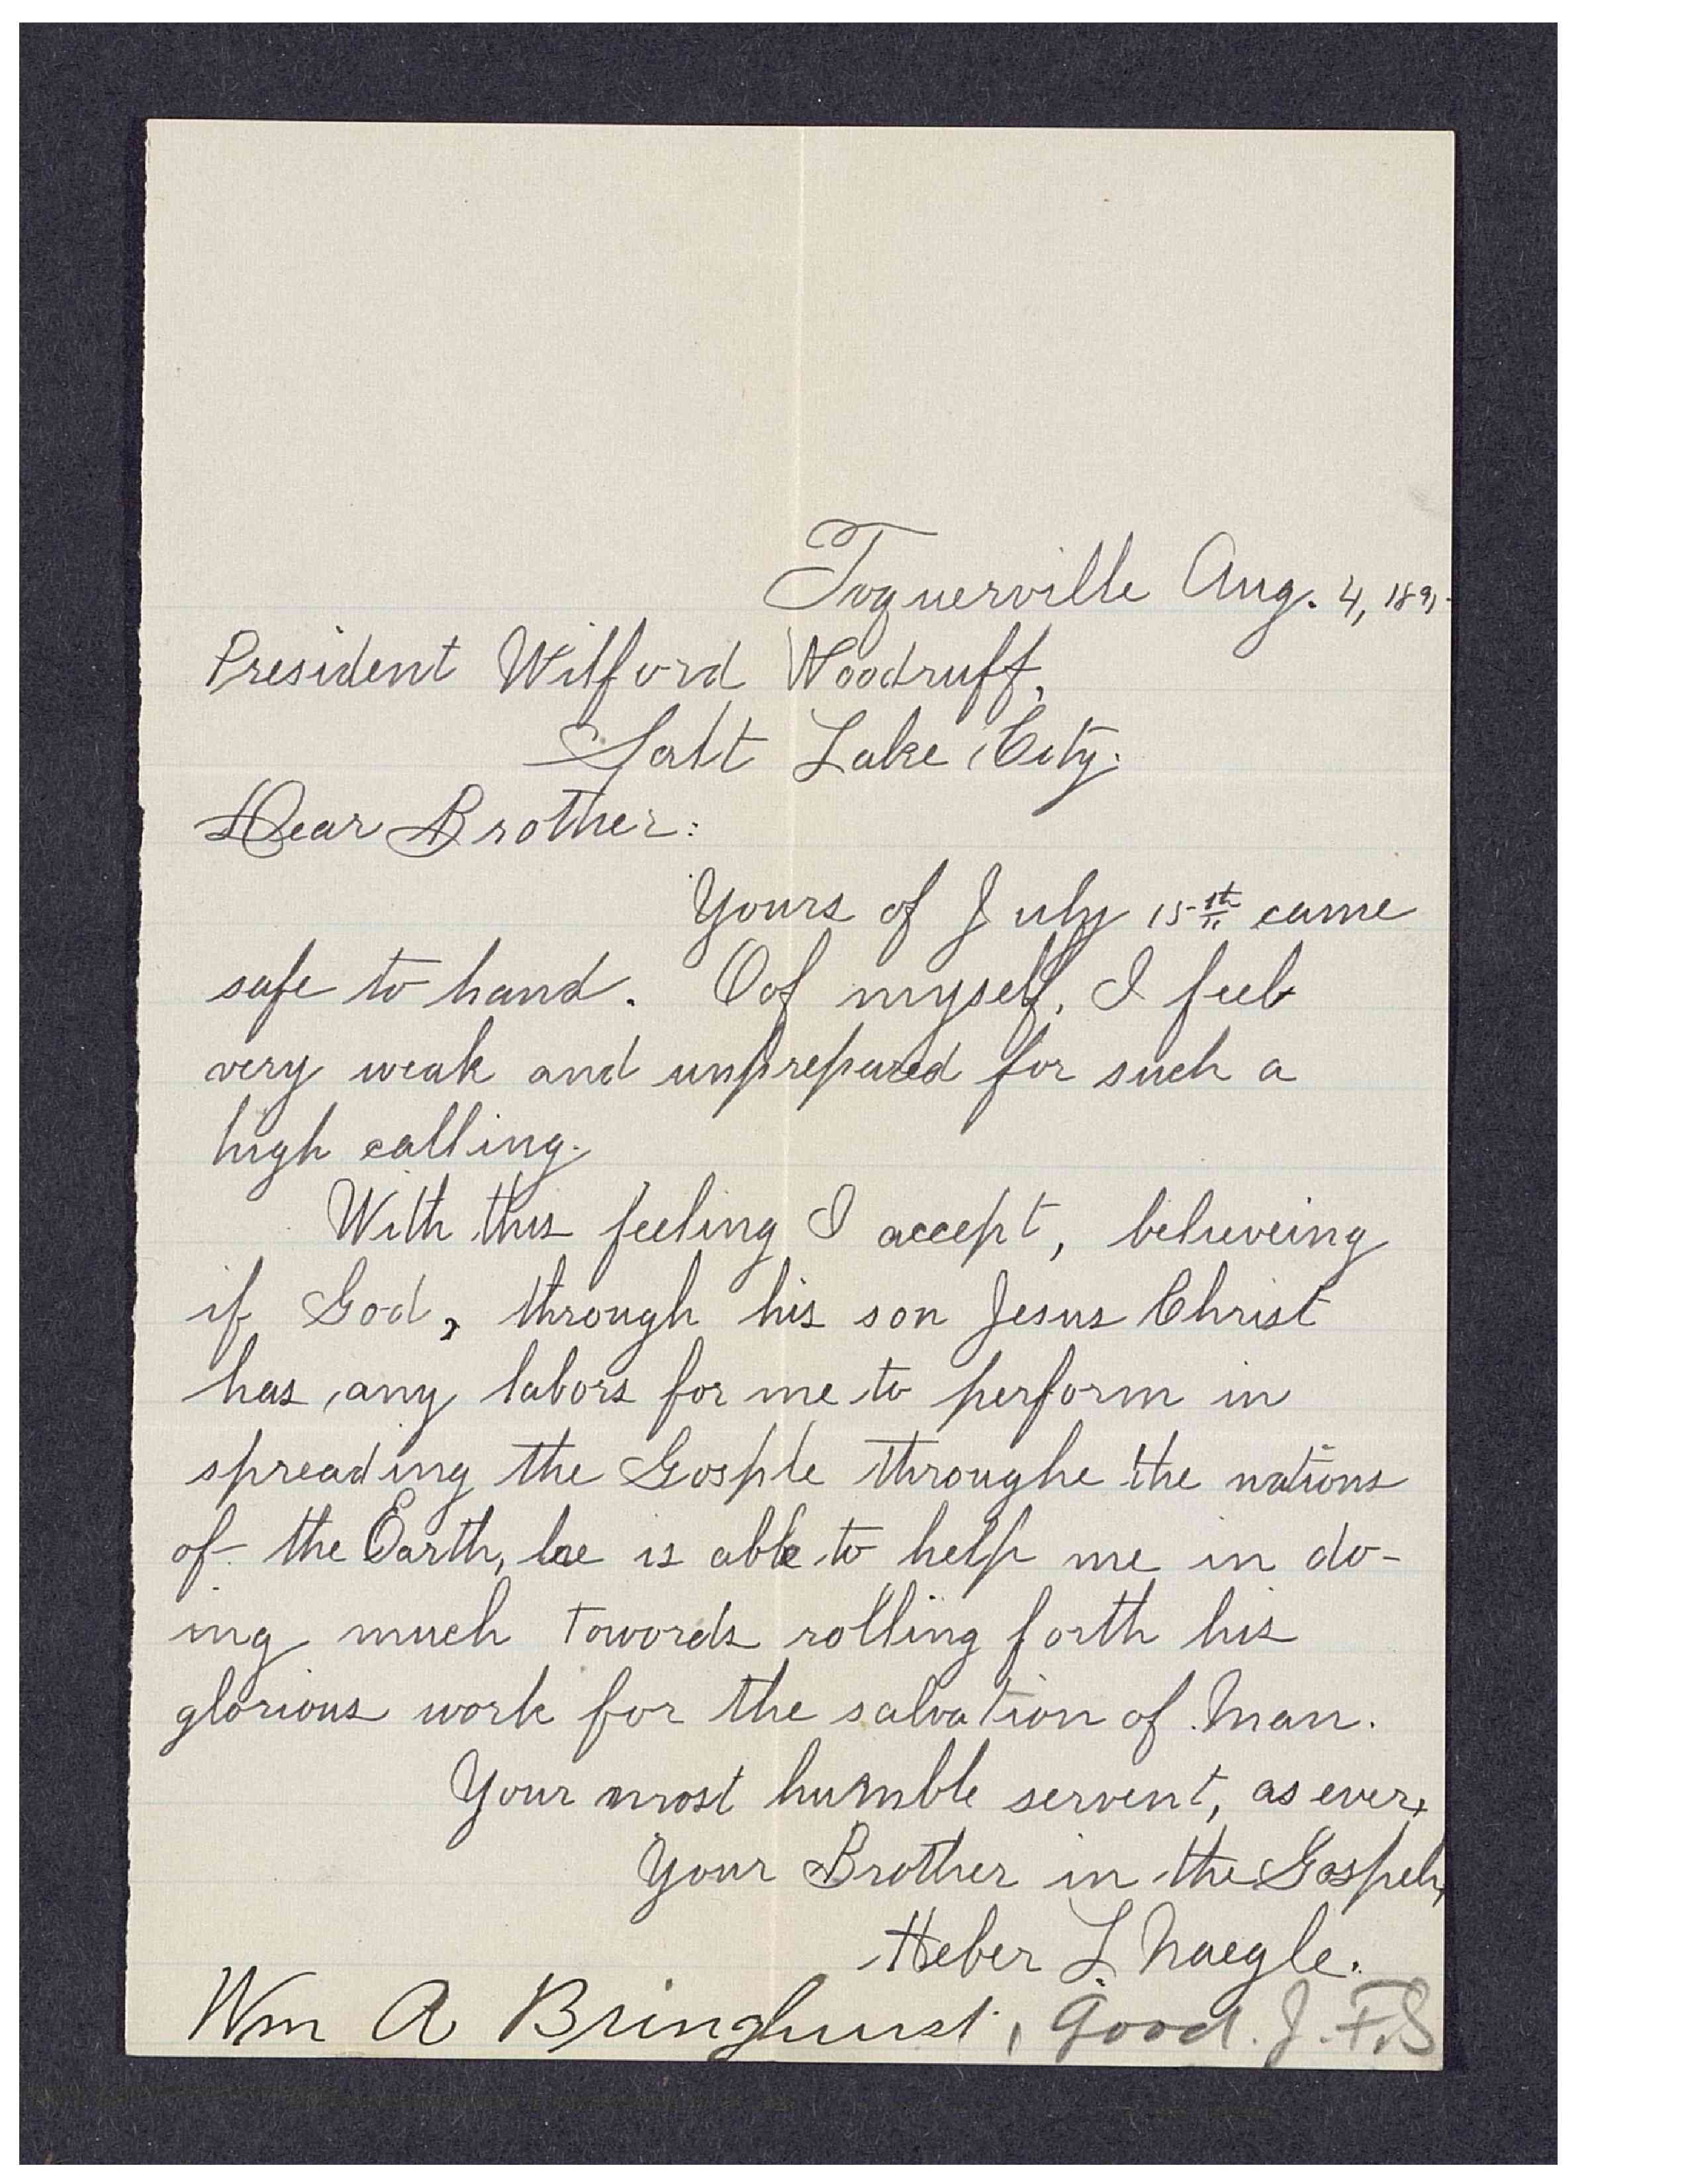 Toquerville Aug. 4, 189
President Wilford Woodruff,
Salt Lake City.
Dear Brother:
Yours of July 15th came
safe to hand. Oof myself, I feel
very weak and unprepared for such a
high calling.
With this feeling I accept, believeing
if God, through his son Jesus Christ
has any labors for me to perform in
spreading the Gosple throughe the nations
of the Earth, he is able to help me in do-
ing much towords rolling forth his
glorious work for the salvation of Man.
Your most humble servent, as ever,
Your Brother in the Gospel,
Heber L Naegle.
Wm A Bringhurst, Good. J. F. S